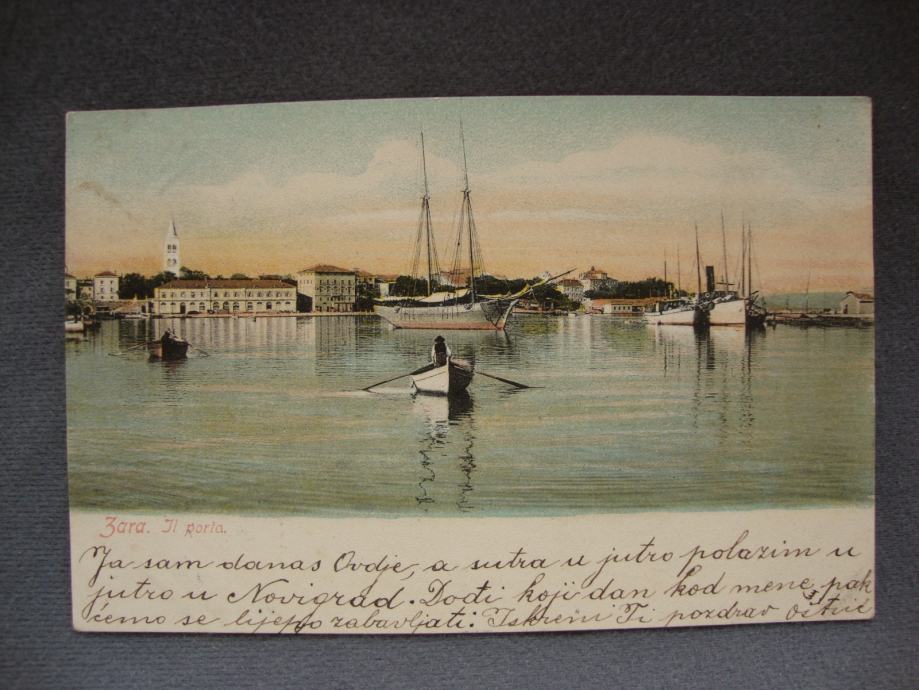 Zara. Il porta.
Ja sam danas Ovdje, a sutra u jutro polazim u
jutro u Novigrad. Dođi koji dan kod mene pak
ćemo se lijepo zabavljati. Iskreni Ti pozdrav Oštrić